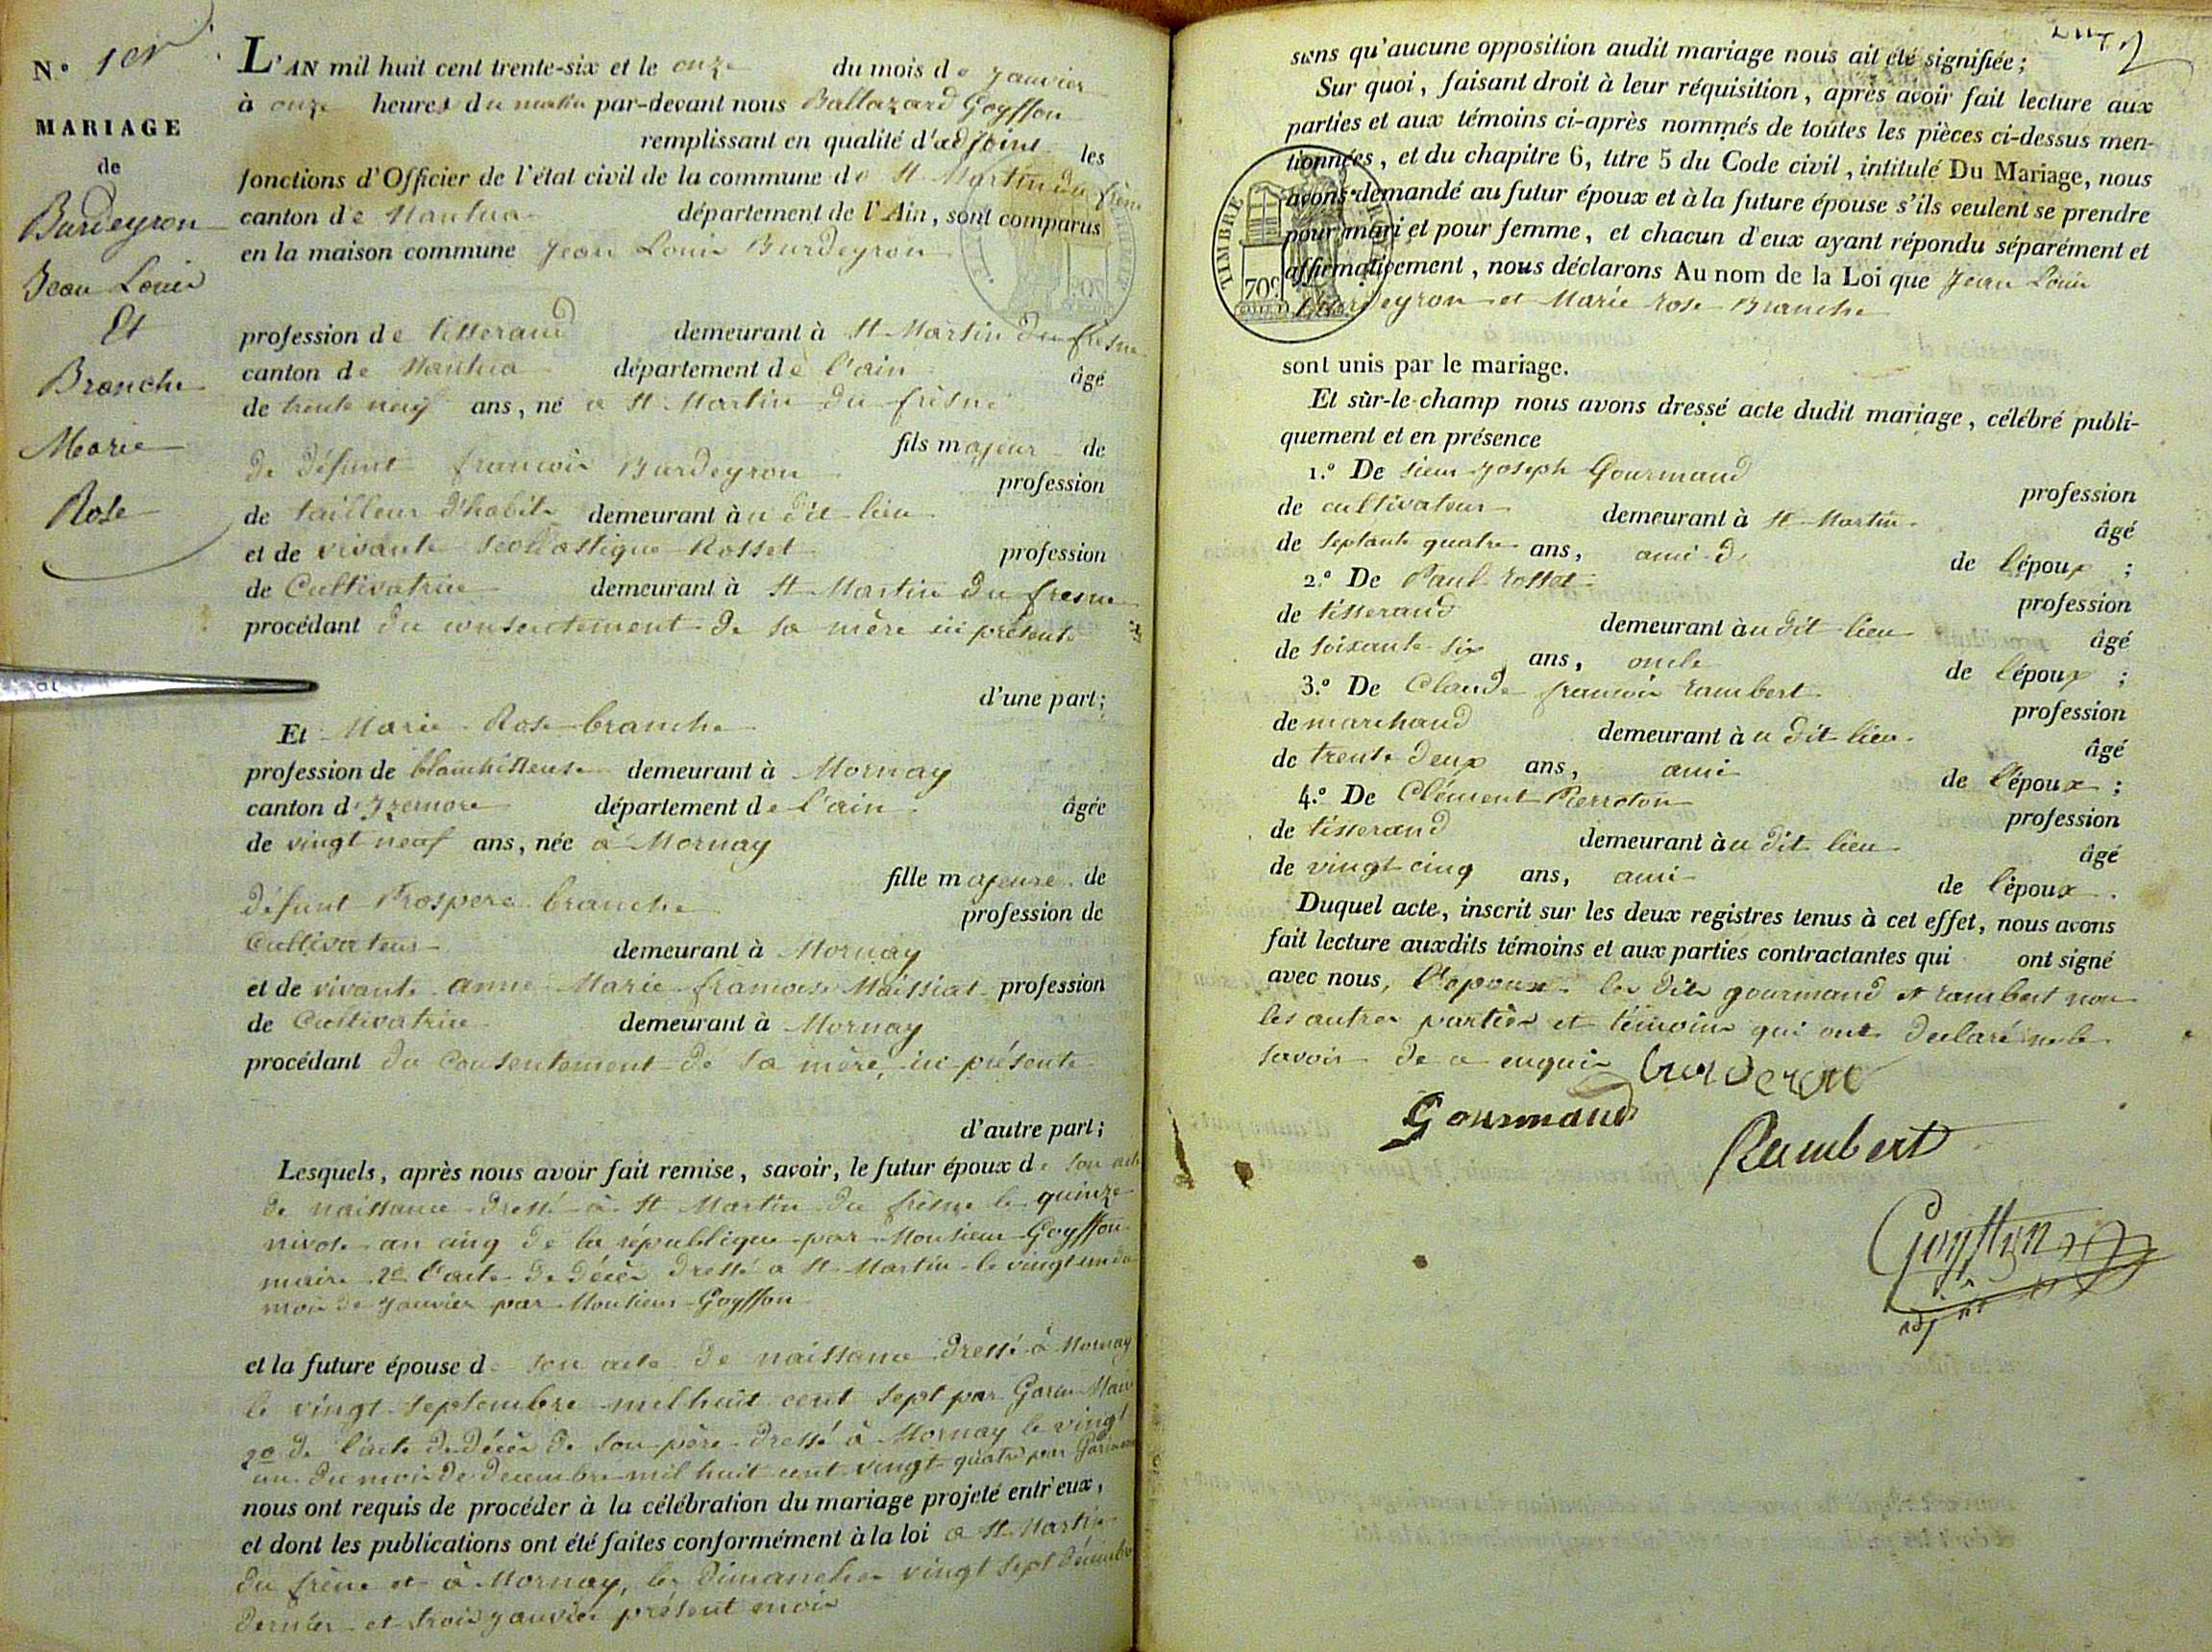 N.º 1er
MARIAGE
de
Burdeyron
Jean Louis
Et
Branche
Marie
Rose
L'AN mil huit cent trente-six et le onze du mois de janvier
à onze heures du matin par-devant nous Baltazard Goyffon
remplissant en qualité d'adjoint les
fonctions d'Officier de l'état civil de la commune de St Martin du frêne
canton de Nantua département de l'Ain, sont comparus
en la maison commune Jean Louis Burdeyron
profession de tisserand demeurant à St Martin du fresne
canton de Nantua département de l'ain âgé
de trente neuf ans, né à St Martin du frêsne
fils majeur de
de défunt francois Burdeyron profession
de tailleur d'habits demeurant à u dit lieu
et de vivante Scollastique Rosset profession
de Cultivatrice demeurant à St Martin du fresne
procédant du consentement de sa mère ici présente
d'une part;
Et Marie Rose branche
profession de blanchisseuse demeurant à Mornay
canton d'Izernore département de l'ain âgée
de vingt neuf ans, née à Mornay
fille majeure de
défunt Prospere branche profession de
Cultivateur demeurant à Mornay
et de vivante anne Marie francoise Maissiat profession
de Cultivatrice demeurant à Mornay
procédant du consentement de sa mère, ici présente
d'autre part;
Lesquels, après nous avoir fait remise, savoir, le futur époux de son acte
de naissance dressé à St Martin du frêsne le quinze
nivose an cinq de la république par Monsieur Goyffon
maire 2º l'acte de décès dressé à St Martin le vingt un du
mois de janvier par Monsieur Goyffon
et la future épouse de son acte de naissance dressé à Mornay
le vingt septembre mil huit cent sept par Garin Maire
2º de l'acte de décès de son père dressé à Mornay le vingt
un du mois de decembre mil huit cent vingt quatre par Garin
nous ont requis de procéder à la célébration du mariage projeté entr'eux,
et dont les publications ont été faites conformément à la loi à St Martin
du frêne et à Mornay, les dimanches vingt sept décembre
dernier et trois janvier présent mois
sans qu'aucune opposition audit mariage nous ait été signifiée;
Sur quoi, faisant droit à leur réquisition, après avoir fait lecture aux
parties et aux témoins ci-après nommés de toutes les pièces ci-dessus men-
tionnées, et du chapitre 6, titre 5 du Code civil, intitulé Du Mariage, nous
avons demandé au futur époux et à la future épouse s'ils veulent se prendre
pour mari et pour femme, et chacun d'eux ayant répondu séparément et
affirmativement, nous déclarons Au nom de la Loi que Jean Louis
Burdeyron et Marie rose Branche
TIMBRE ROYAL
70c
sont unis par le mariage.
Et sûr-le-champ nous avons dressé acte dudit mariage, célébré publi-
quement et en présence
1.º De sieur joseph Gourmand profession
de cultivateur demeurant à St Martin âgé
de septante quatre ans, ami de de l'époux ;
2.º De Paul rosset profession
de tisserand demeurant à u dit lieu âgé
de soixante six ans, oncle de l'époux ;
3.º De Claude francois rambert profession
de marchand demeurant à u dit lieu âgé
de trente deux ans, ami de l'époux ;
4.º De Clément Pierroton profession
de tisserand demeurant à u dit lieu âgé
de vingt cinq ans, ami de l'époux .
Duquel acte, inscrit sur les deux registres tenus à cet effet, nous avons
fait lecture auxdits témoins et aux parties contractantes qui ont signé
avec nous, l'époux les dits gourmand et rambert non
les autres parties et témoins qui ont declaré ne le
savoir de ce enquis burderon
Gourmand
Rambert
Goyffon
adjnt